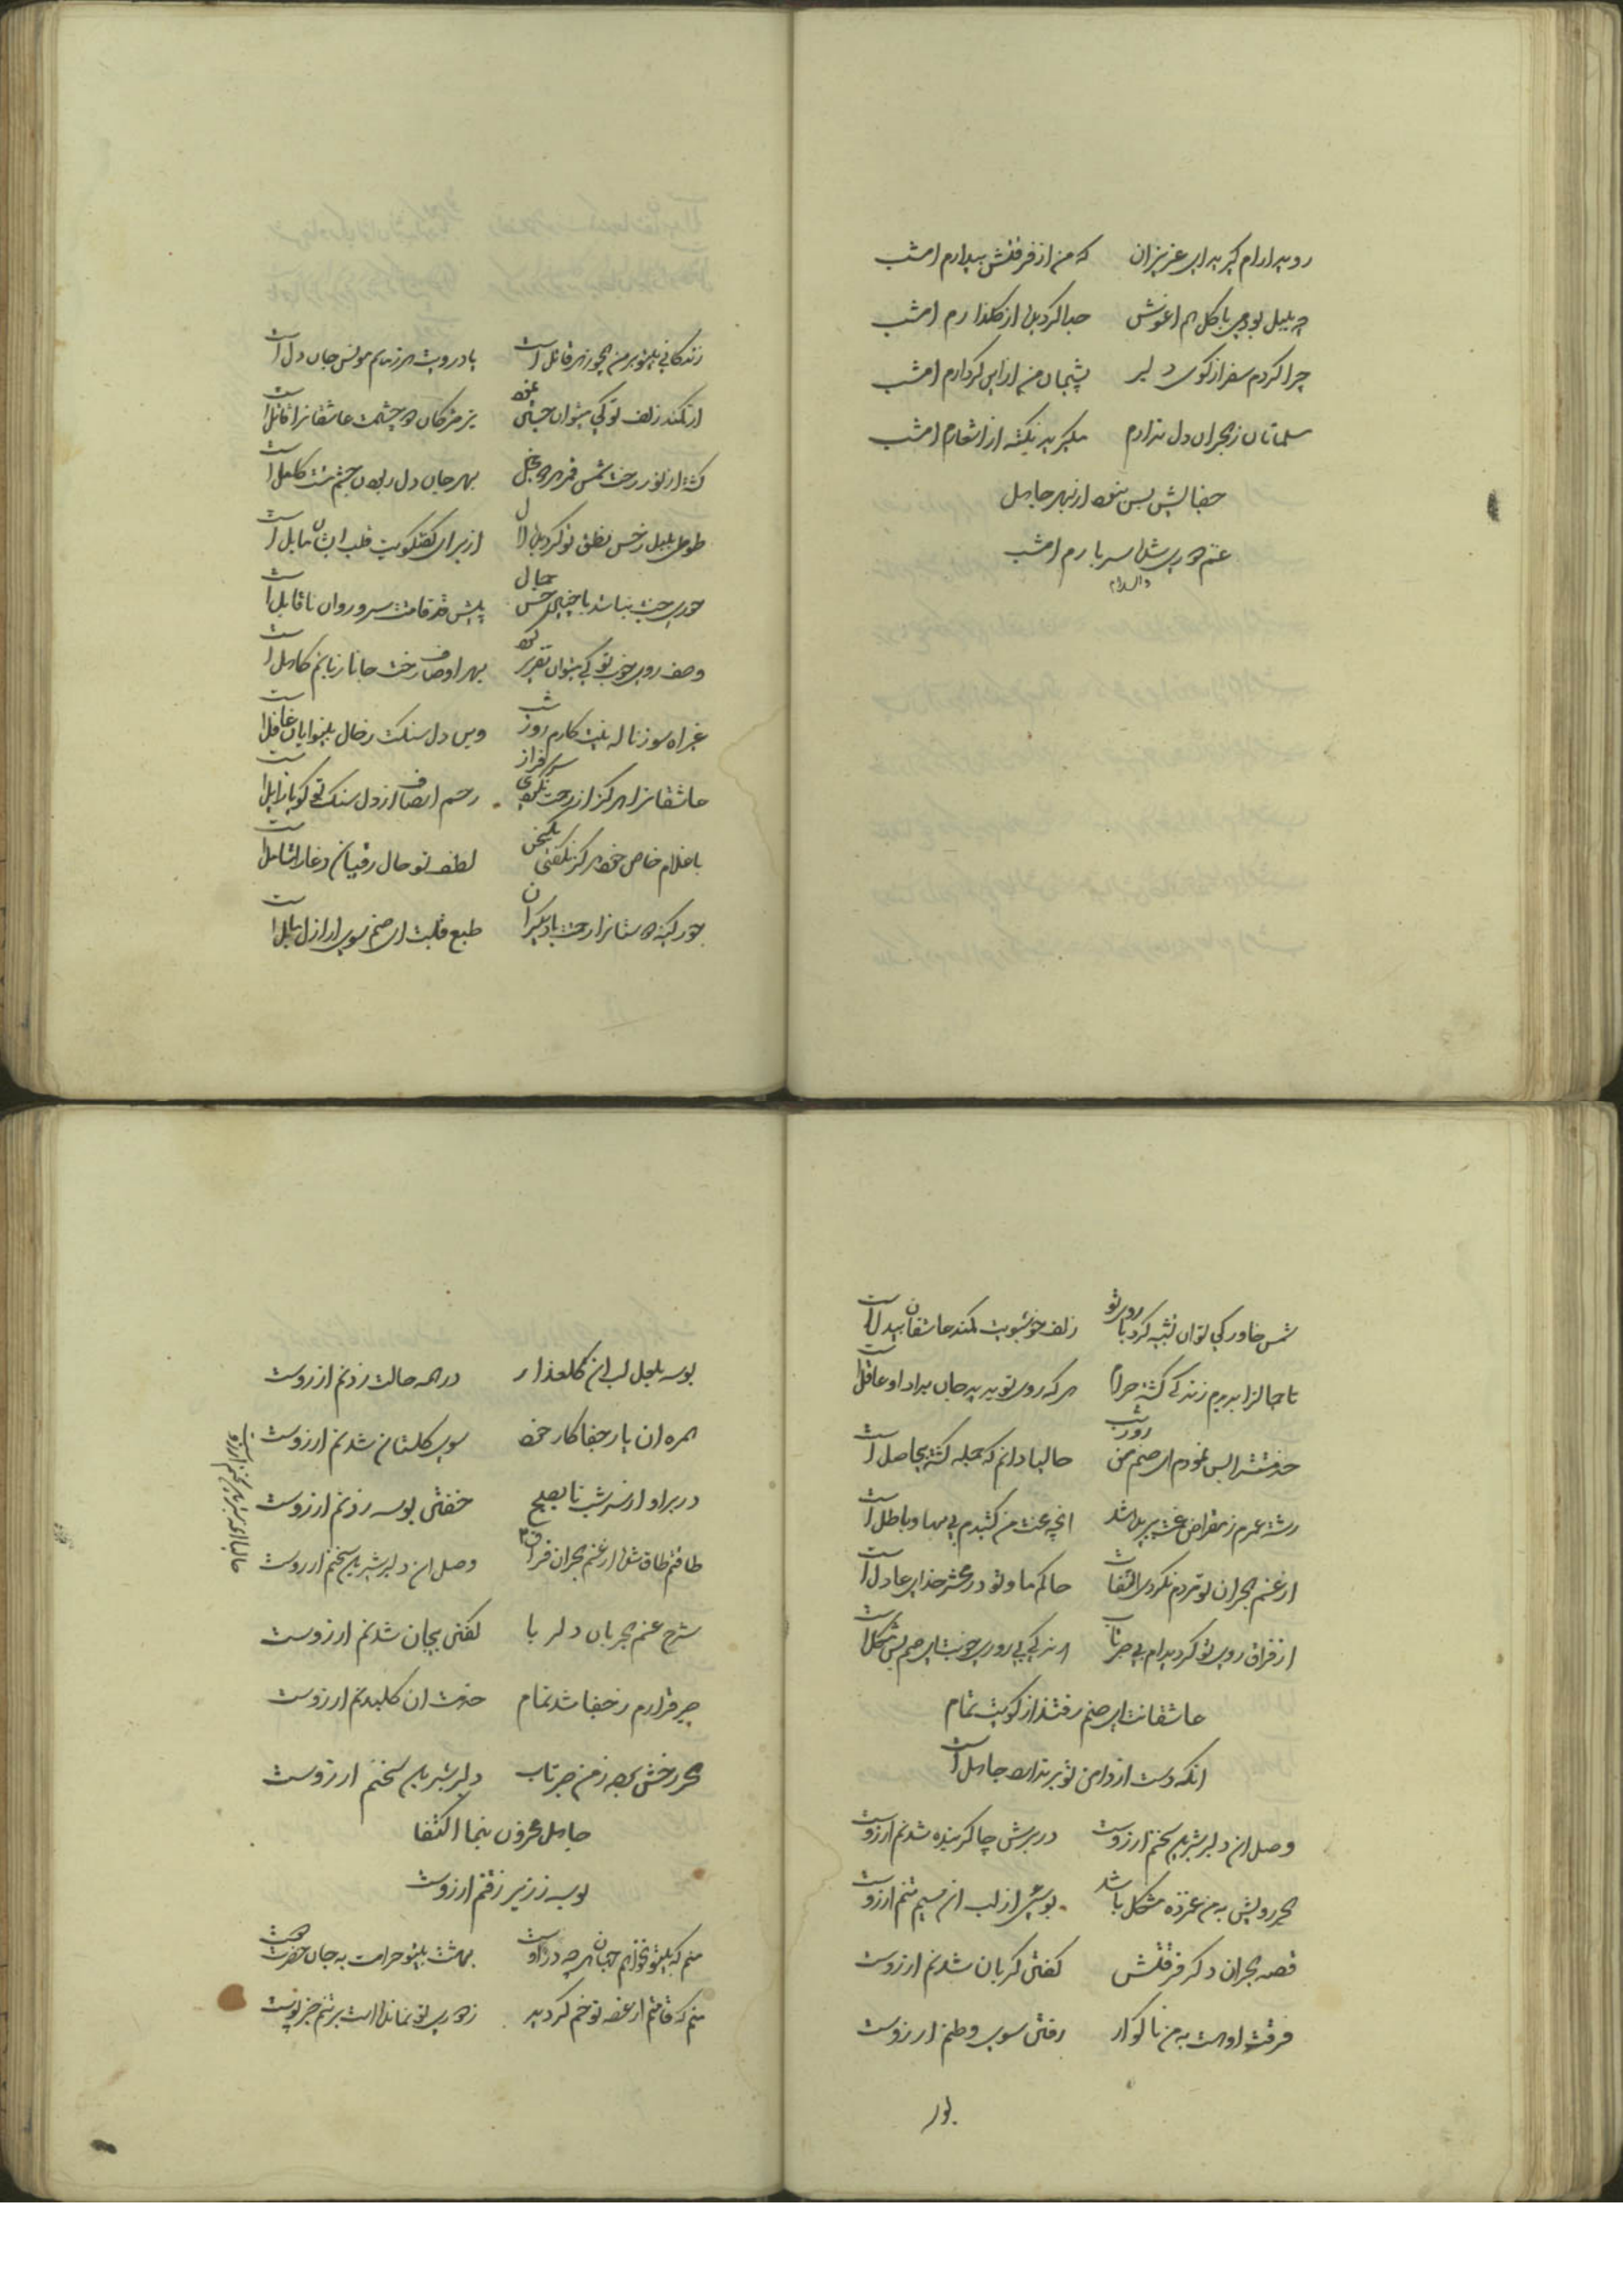 روید ارام گیرید ای عزیزان که من از فرقتش بیدارم امشب
چه بلبل بودمی با گل هم اغوش جدا گردیده از گلذارم امشب
چرا کردم سفر از کوی دلبر پشیمان من از این کردارم امشب
مسلمانان ز هجران دل ندارم بگیرید نکته از اشعارم امشب
جفایش بس نبود از بهر جاهل
غم دوری شده سربارم امشب
والسلام
زندگانی بیتو بر من همچو زهر قاتل است یاد رویت هر زمانم مونس جان و دل است
از کمند زلف تو کی میتوان جستن تیر مژگان دو چشمت عاشقانرا قاتل است
گشته از نور رخت شمس قمر هردو خجل بهر جان دل ربودن چشم مستت کامل است
طوطی بلبل ز حسن نطق تو گردیده لال از برای گفتگویت قلب ایشان مایل است
حوری جنت نباشد با چنین حسن جمال پیش قد قامتت سرو روان ناقابل است
وصف روی خوب تو کی میتوان تقریر کرد بهر اوصاف رخت جانا زبانم کامل است
غیر اه سوز ناله نیست کارم روز شب وین دل سنگت ز حال بینوایان غافل است
عاشقانرا هرگز از رحمت نکردی سرفراز رحم انصاف از دل سنگ تو گویا زایل است
با غلام خاص خود هرگز نگفتی یک سخن لطف تو حال رقیبان دغا را شامل است
جور کینه دوستانرا رحمت با دیگران طبع قلبت ای صنم سوی ارازل مایل است
شمس خاور کی توان تشبیه کرد با روی تو زلف خوشبویت کمند عاشقان بیدل است
تا جمالترا بدیدم زندگی گشته حرام هر که روی تو بدید جان میداد او عاقل است
خدمتت را بس نمودم ای صنم من روز شب حالیا دانم که جمله گشته بیحاصل است
رشته عمرم ز مقراض غمت ببریده شد انچه محنت من کشیدم بی بها و باطل است
از غم هجران تو مردم نکردی التفات حاکم ما و تو در محشر خدای عادل است
از فراق روی تو گردیده ام بی صبر تاب زندگی بی روی خوبت ای صنم بس مشکل است
عاشقانت ای صنم رفتند از کویت تمام
انکه دست از دامن تو بر ندارد جاهل است
وصل ان دلبر شیرین سخنم ارزوست در برش چاکر بنده شدنم ارزوست
هجر رویش به من غمزده مشکل باشد بوسه از لب ان سیم تنم ارزوست
قصه هجران دگر فرقتش گفتن گریان شدنم ارزوست
فرقت او هست به من ناگوار رفتن سوی وطنم ارزوست
بوسه
بوسه بلعل لب ان گلعذار در همه حالت زدنم ارزوست
همره ان یار جفاکار خود سوی گلستان شدنم ارزوست
در بر او از سر شب تا بصبح خفتن بوسه زدنم ارزوست
طاقتم طاق شده از غم هجران فراق وصل ان دلبر شیرین سخنم ارزوست
شرح غم هجر بان دلربا گفتن بیجان شدنم ارزوست
صبر قرارم ز جفا شد تمام خدمت ان گلبدنم ارزوست
هجر رخش برده ز من صبر تاب دلبر شیرین سخنم ارزوست
جاهل محزون بنما اکتفا
بوسه ز زیر ذقنم ارزوست
منم که بیتو نخواهم جهان هرچه در اوست بهشت بیتو حرامست به جان حضرت دوست
منم که قامتم از غصه تو خم گردید ز دوری تو نمانده است بر تنم جز پوست